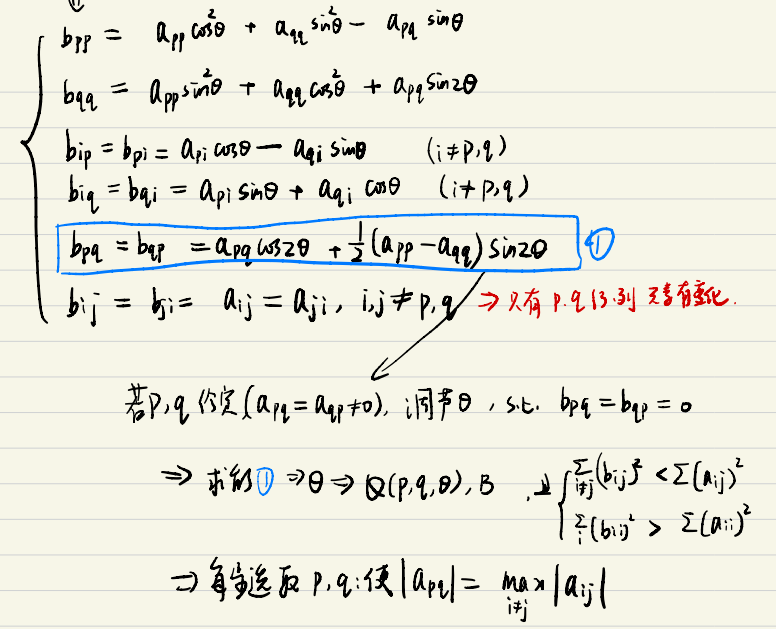 ①
b_{pp} = a_{pp} cos²θ + a_{qq} sin²θ − a_{pq} sinθ
b_{qq} = a_{pp} sin²θ + a_{qq} cos²θ + a_{pq} sin2θ
b_{ip} = b_{pi} = a_{pi} cosθ − a_{qi} sinθ (i≠p,q)
b_{iq} = b_{qi} = a_{pi} sinθ + a_{qi} cosθ (i≠p,q)
b_{pq} = b_{qp} = a_{pq} cos2θ + ½(a_{pp} − a_{qq}) sin2θ ①
b_{ij} = b_{ji} = a_{ij} = a_{ji}, i,j≠p,q ⇒ 只有 p.q 行.列 元素有变化.
若p,q 给定(a_{pq} = a_{qp} ≠0), 调节θ, s.t. b_{pq} = b_{qp} = 0
⇒ 求解① ⇒ θ ⇒ Q(p,q,θ), B , 且 { Σ_{i≠j}(b_{ij})² < Σ(a_{ij})²
Σ_i(b_{ii})² > Σ(a_{ii})²
⇒ 每步选取 p,q: 使|a_{pq}| = max_{i≠j}|a_{ij}|